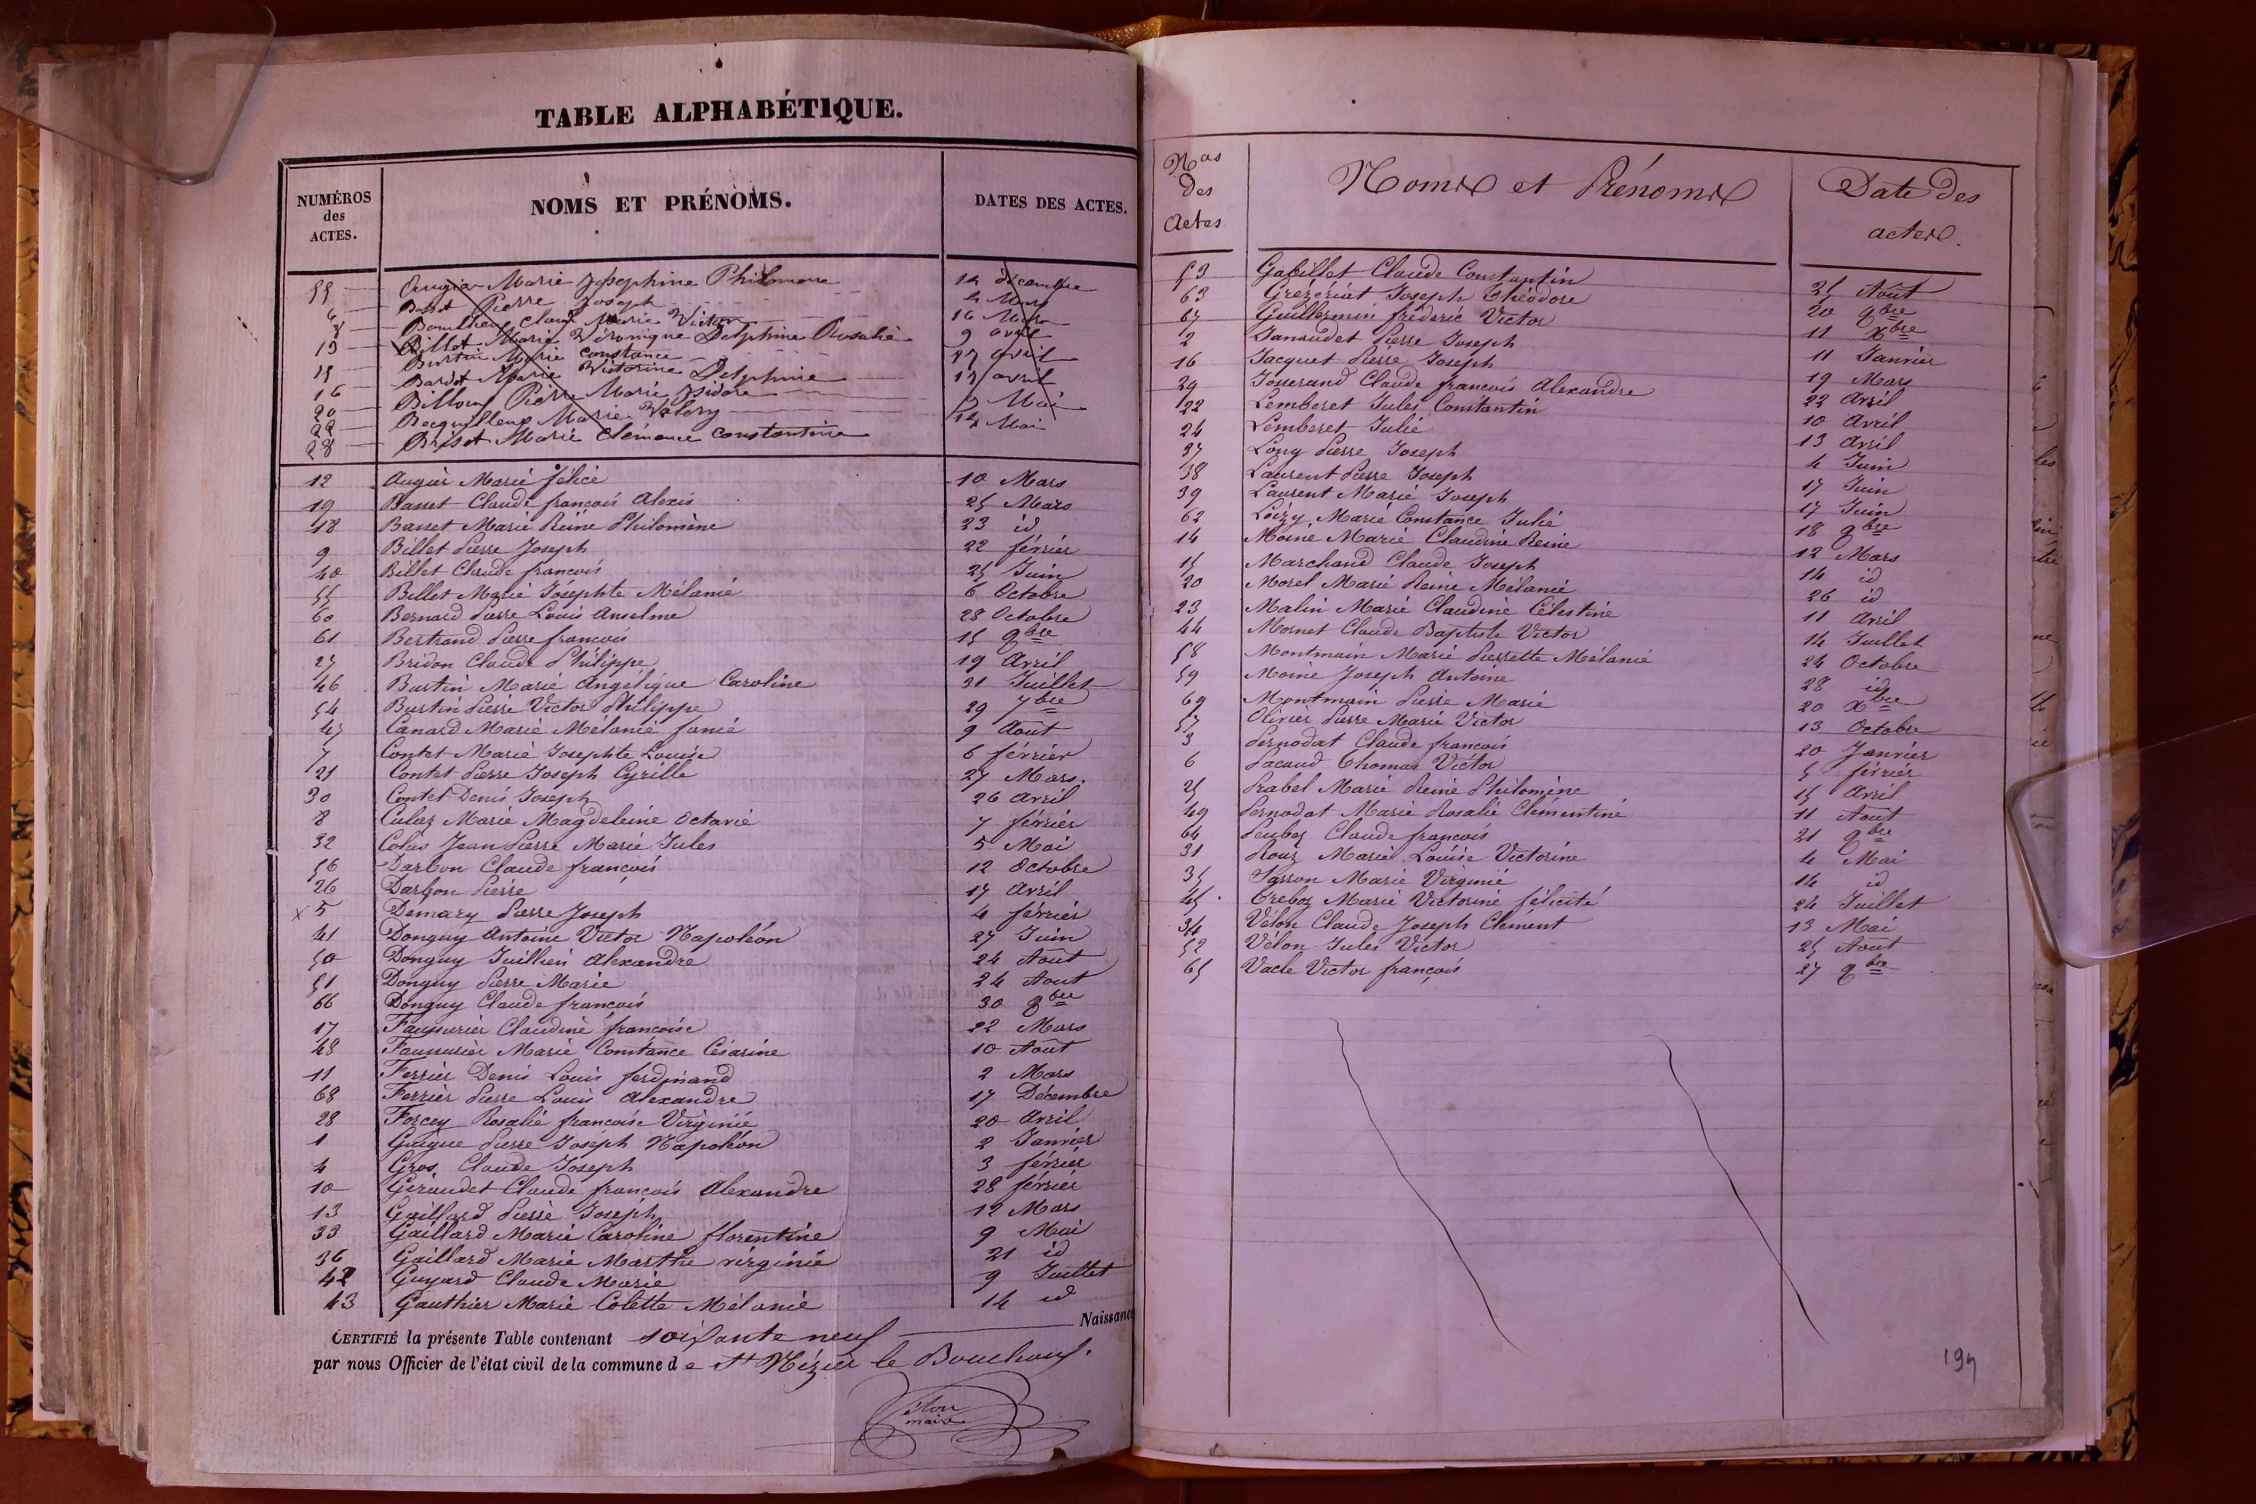 TABLE ALPHABÉTIQUE.
NUMÉROS des ACTES.
NOMS ET PRÉNOMS.
DATES DES ACTES.
55 Augier Marie Josephine Philomene 14 décembre
6 Pierre Joseph 4 Mars
8 Marie Victor 16 Mars
13 Billet Marie Véronique Delphine Rosalie 9 avril
15 Burtin Marie Constance 27 avril
16 Bardet Marie Victorine Delphine 17 avril
20 Billoux Pierre Marie Isidore 2 Mai
22 Becquilleux Marie Valery 14 Mai
28 Marie Clémence Constantine
12 Augier Marie félicie 10 Mars
19 Basset Claude françois Alexis 25 Mars
18 Basset Marie Reine Philomène 23 id
9 Billet Pierre Joseph 22 février
40 Billet Claude françois 25 Juin
55 Billet Marie Joséphte Mélanie 6 Octobre
60 Bernard Pierre Louis Anselme 28 Octobre
61 Bertrand Pierre françois 15 9bre
27 Bridon Claude Philippe 19 Avril
46 Burtin Marie Angélique Caroline 31 Juillet
54 Burtin Pierre Victor Philippe 29 7bre
47 Canard Marie Mélanie fanie 9 Août
7 Contet Marie Josephte Louise 6 février
21 Contet Pierre Joseph Cyrille 27 Mars.
30 Contet Denis Joseph 26 Avril
8 Culaz Marie Magdeleine Octavie 7 février
32 Colas Jean Pierre Marie Jules 5 Mai
56 Darbon Claude françois 12 Octobre
26 Darbon Pierre 17 Avril
x 5 Demazy Pierre Joseph 4 février
41 Donguy Antoine Victor Napoléon 27 Juin
50 Donguy Juillien Alexandre 24 Aout
51 Donguy Pierre Marie 24 Aout
66 Donguy Claude françois 30 9bre
17 Faussurier Claudine françoise 22 Mars
48 Faussurier Marie Constance Césarine 10 Aout
11 Ferrier Denis Louis ferdinand 2 Mars
68 Ferrier Pierre Louis Alexandre 17 Décembre
28 Forcey Rosalie françoise Virginie 20 Avril
1 Guigue Pierre Joseph Napoléon 2 Janvier
4 Gros Claude Joseph 3 février
10 Giraudet Claude françois Alexandre 28 février
13 Gaillard Pierre Joseph 12 Mars
33 Gaillard Marie Caroline florentine 9 Mai
36 Gaillard Marie Marthe virginie 21 id
42 Guyard Claude Marie 9 Juillet
43 Gauthier Marie Colette Mélanie 14 id
CERTIFIÉ la présente Table contenant soixante neuf Naissance
par nous Officier de l'état civil de la commune de St Nizier le Bouchoux.
Vélon
maire
Nos des Actes
Noms et Prénoms
Date des actes.
53 Gabillet Claude Constantin 25 Août
63 Grézériat Joseph Théodore 20 9bre
67 Guillermin frédéric Victor 11 Xbre
2 Janaudet Pierre Joseph 11 Janvier
16 Jacquet Pierre Joseph 19 Mars
29 Josserand Claude françois Alexandre 22 Avril
22 Lemberet Jules Constantin 10 Avril
24 Lemberet Julie 13 Avril
37 Long Pierre Joseph 4 Juin
38 Laurent Pierre Joseph 17 Juin
39 Laurent Marie Joseph 17 Juin
62 Loizy Marie Constance Julie 18 9bre
14 Moine Marie Claudine Reine 12 Mars
15 Marchand Claude Joseph 14 id
20 Morel Marie Reine Mélanie 26 id
23 Malin Marie Claudine Célestine 11 Avril
44 Mornet Claude Baptiste Victor 14 Juillet
58 Montmain Marie Pierrette Mélanie 24 Octobre
59 Moine Joseph Antoine 28 id
69 Montmain Pierre Marie 20 Xbre
57 Olivier Pierre Marie Victor 13 Octobre
3 Pernodat Claude françois 20 Janvier
6 Pacaud Thomas Victor 5 février
25 Prabel Marie Reine Philomène 15 Avril
49 Pernodat Marie Rosalie Clémentine 11 Aout
64 Claude françois 21 9bre
31 Roux Marie Louise Victorine 4 Mai
35 Sarron Marie Virginie 14 id
45 Treboz Marie Victorine félicité 24 Juillet
34 Vélon Claude Joseph Clément 13 Mai
52 Vélon Jules Victor 25 Aout
65 Vacle Victor françois 27 9bre
197